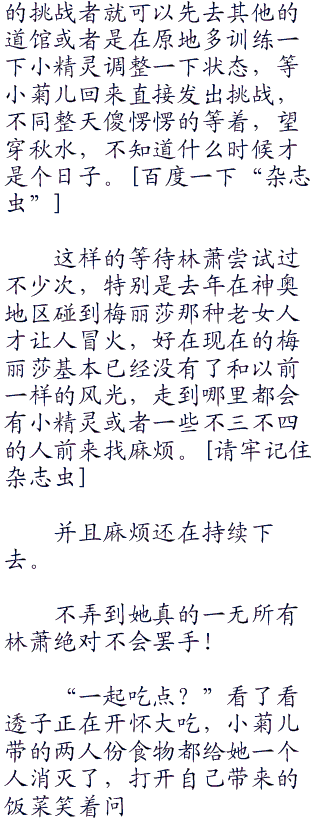 的挑战者就可以先去其他的
道馆或者是在原地多训练一
下小精灵调整一下状态，等
小菊儿回来直接发出挑战，
不同整天傻愣愣的等着，望
穿秋水，不知道什么时候才
是个日子。[百度一下“杂志
虫”]
这样的等待林萧尝试过
不少次，特别是去年在神奥
地区碰到梅丽莎那种老女人
才让人冒火，好在现在的梅
丽莎基本已经没有了和以前
一样的风光，走到哪里都会
有小精灵或者一些不三不四
的人前来找麻烦。[请牢记住
杂志虫]
并且麻烦还在持续下
去。
不弄到她真的一无所有
林萧绝对不会罢手！
“一起吃点？”看了看
透子正在开怀大吃，小菊儿
带的两人份食物都给她一个
人消灭了，打开自己带来的
饭菜笑着问